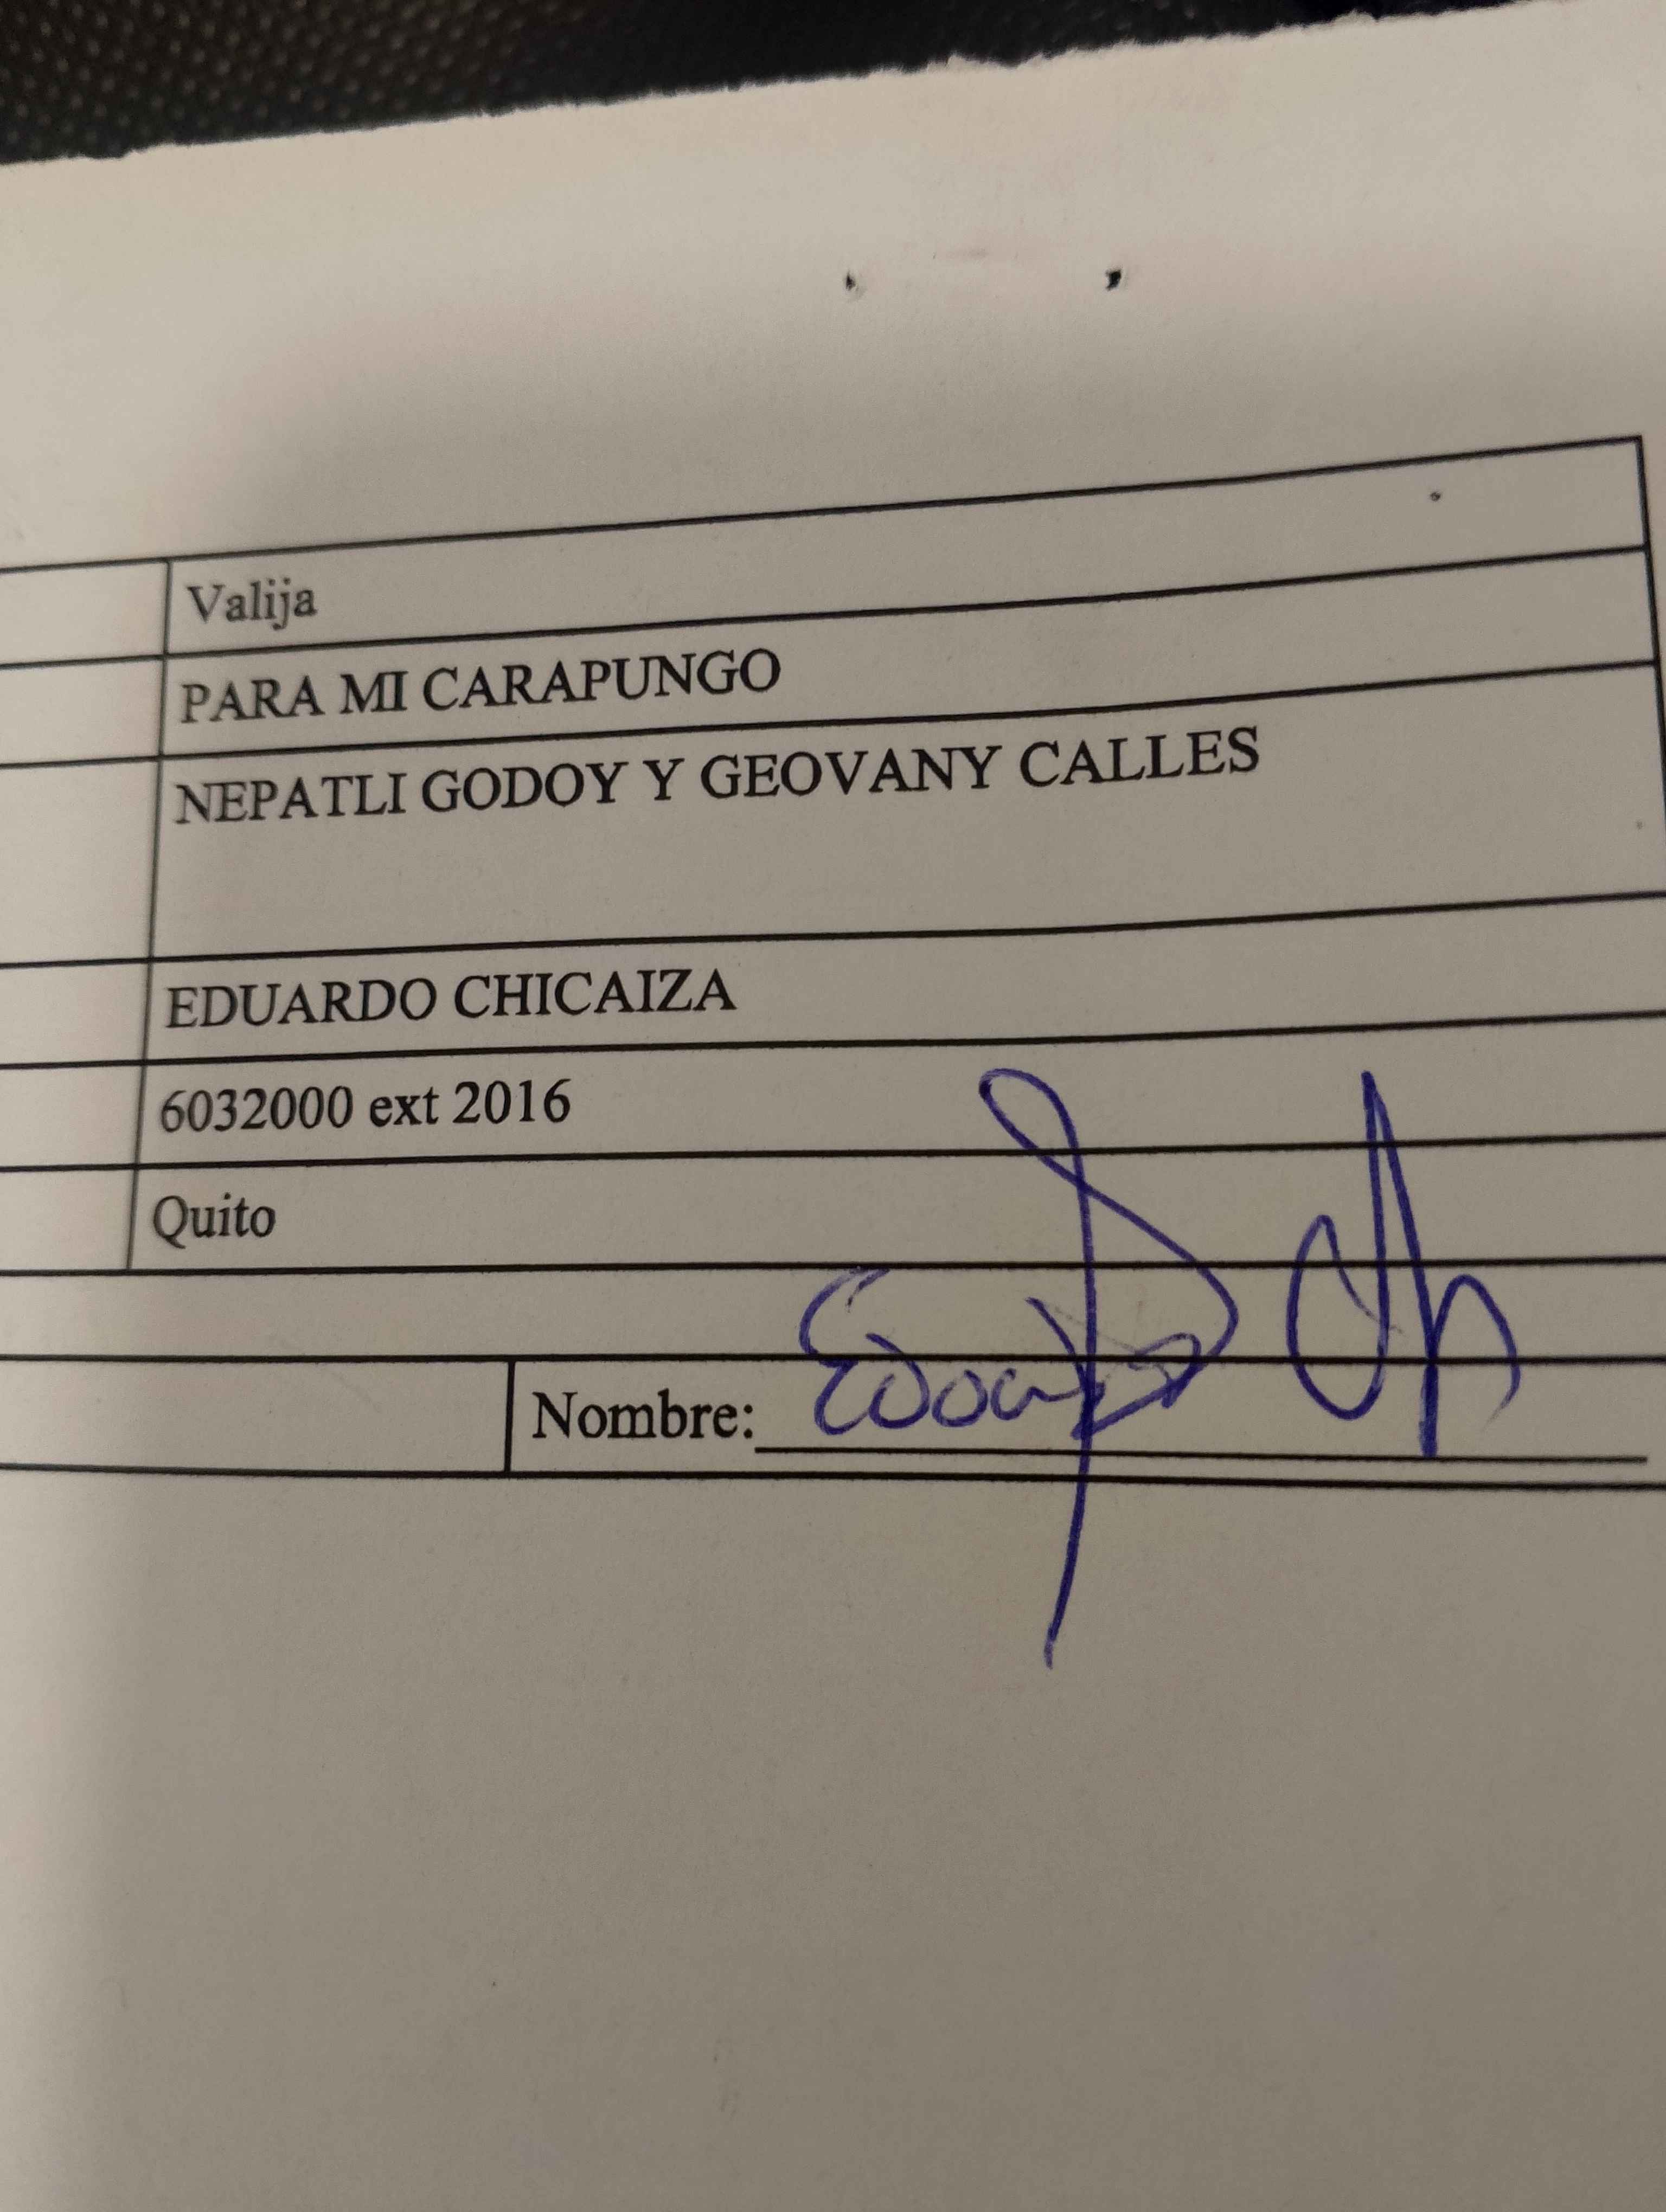 Valija
PARA MI CARAPUNGO
NEPATLI GODOY Y GEOVANY CALLES
EDUARDO CHICAIZA
6032000 ext 2016
Quito
Nombre: